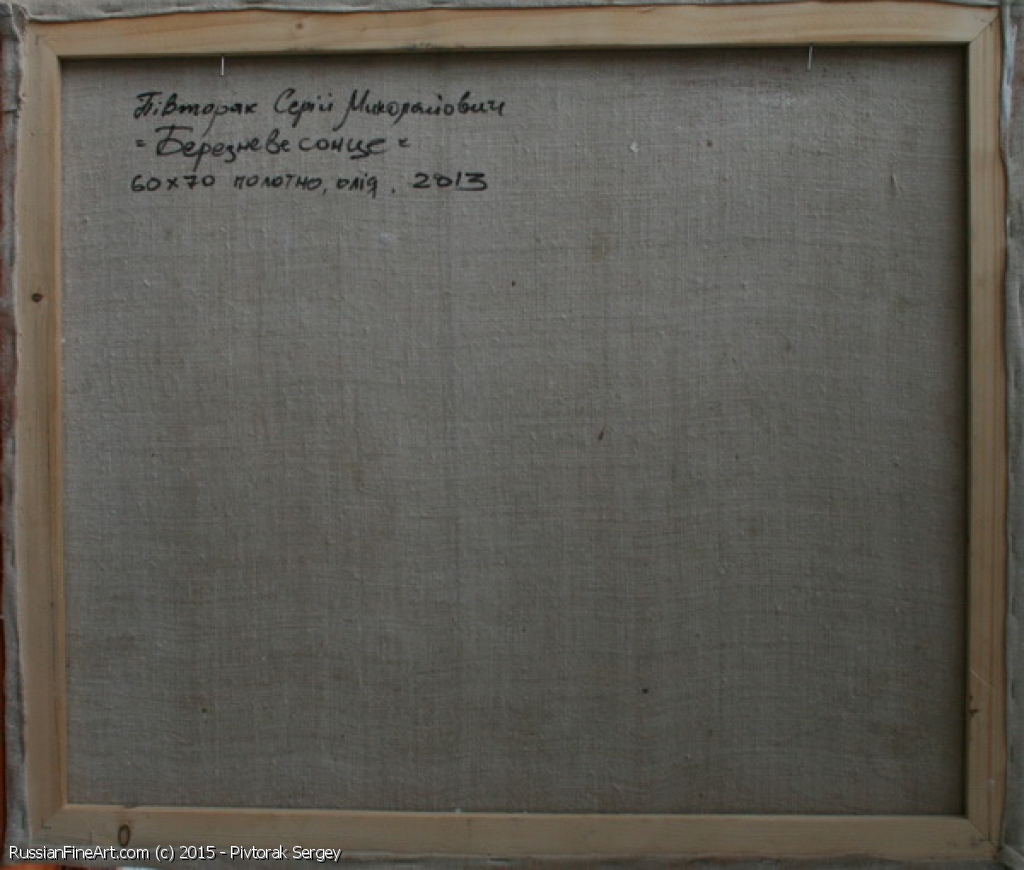 Півторак Сергій Миколайович
"Березневе сонце"
60х70 полотно, олія, 2013
0
RussianFineArt.com (c) 2015 - Pivtorak Sergey